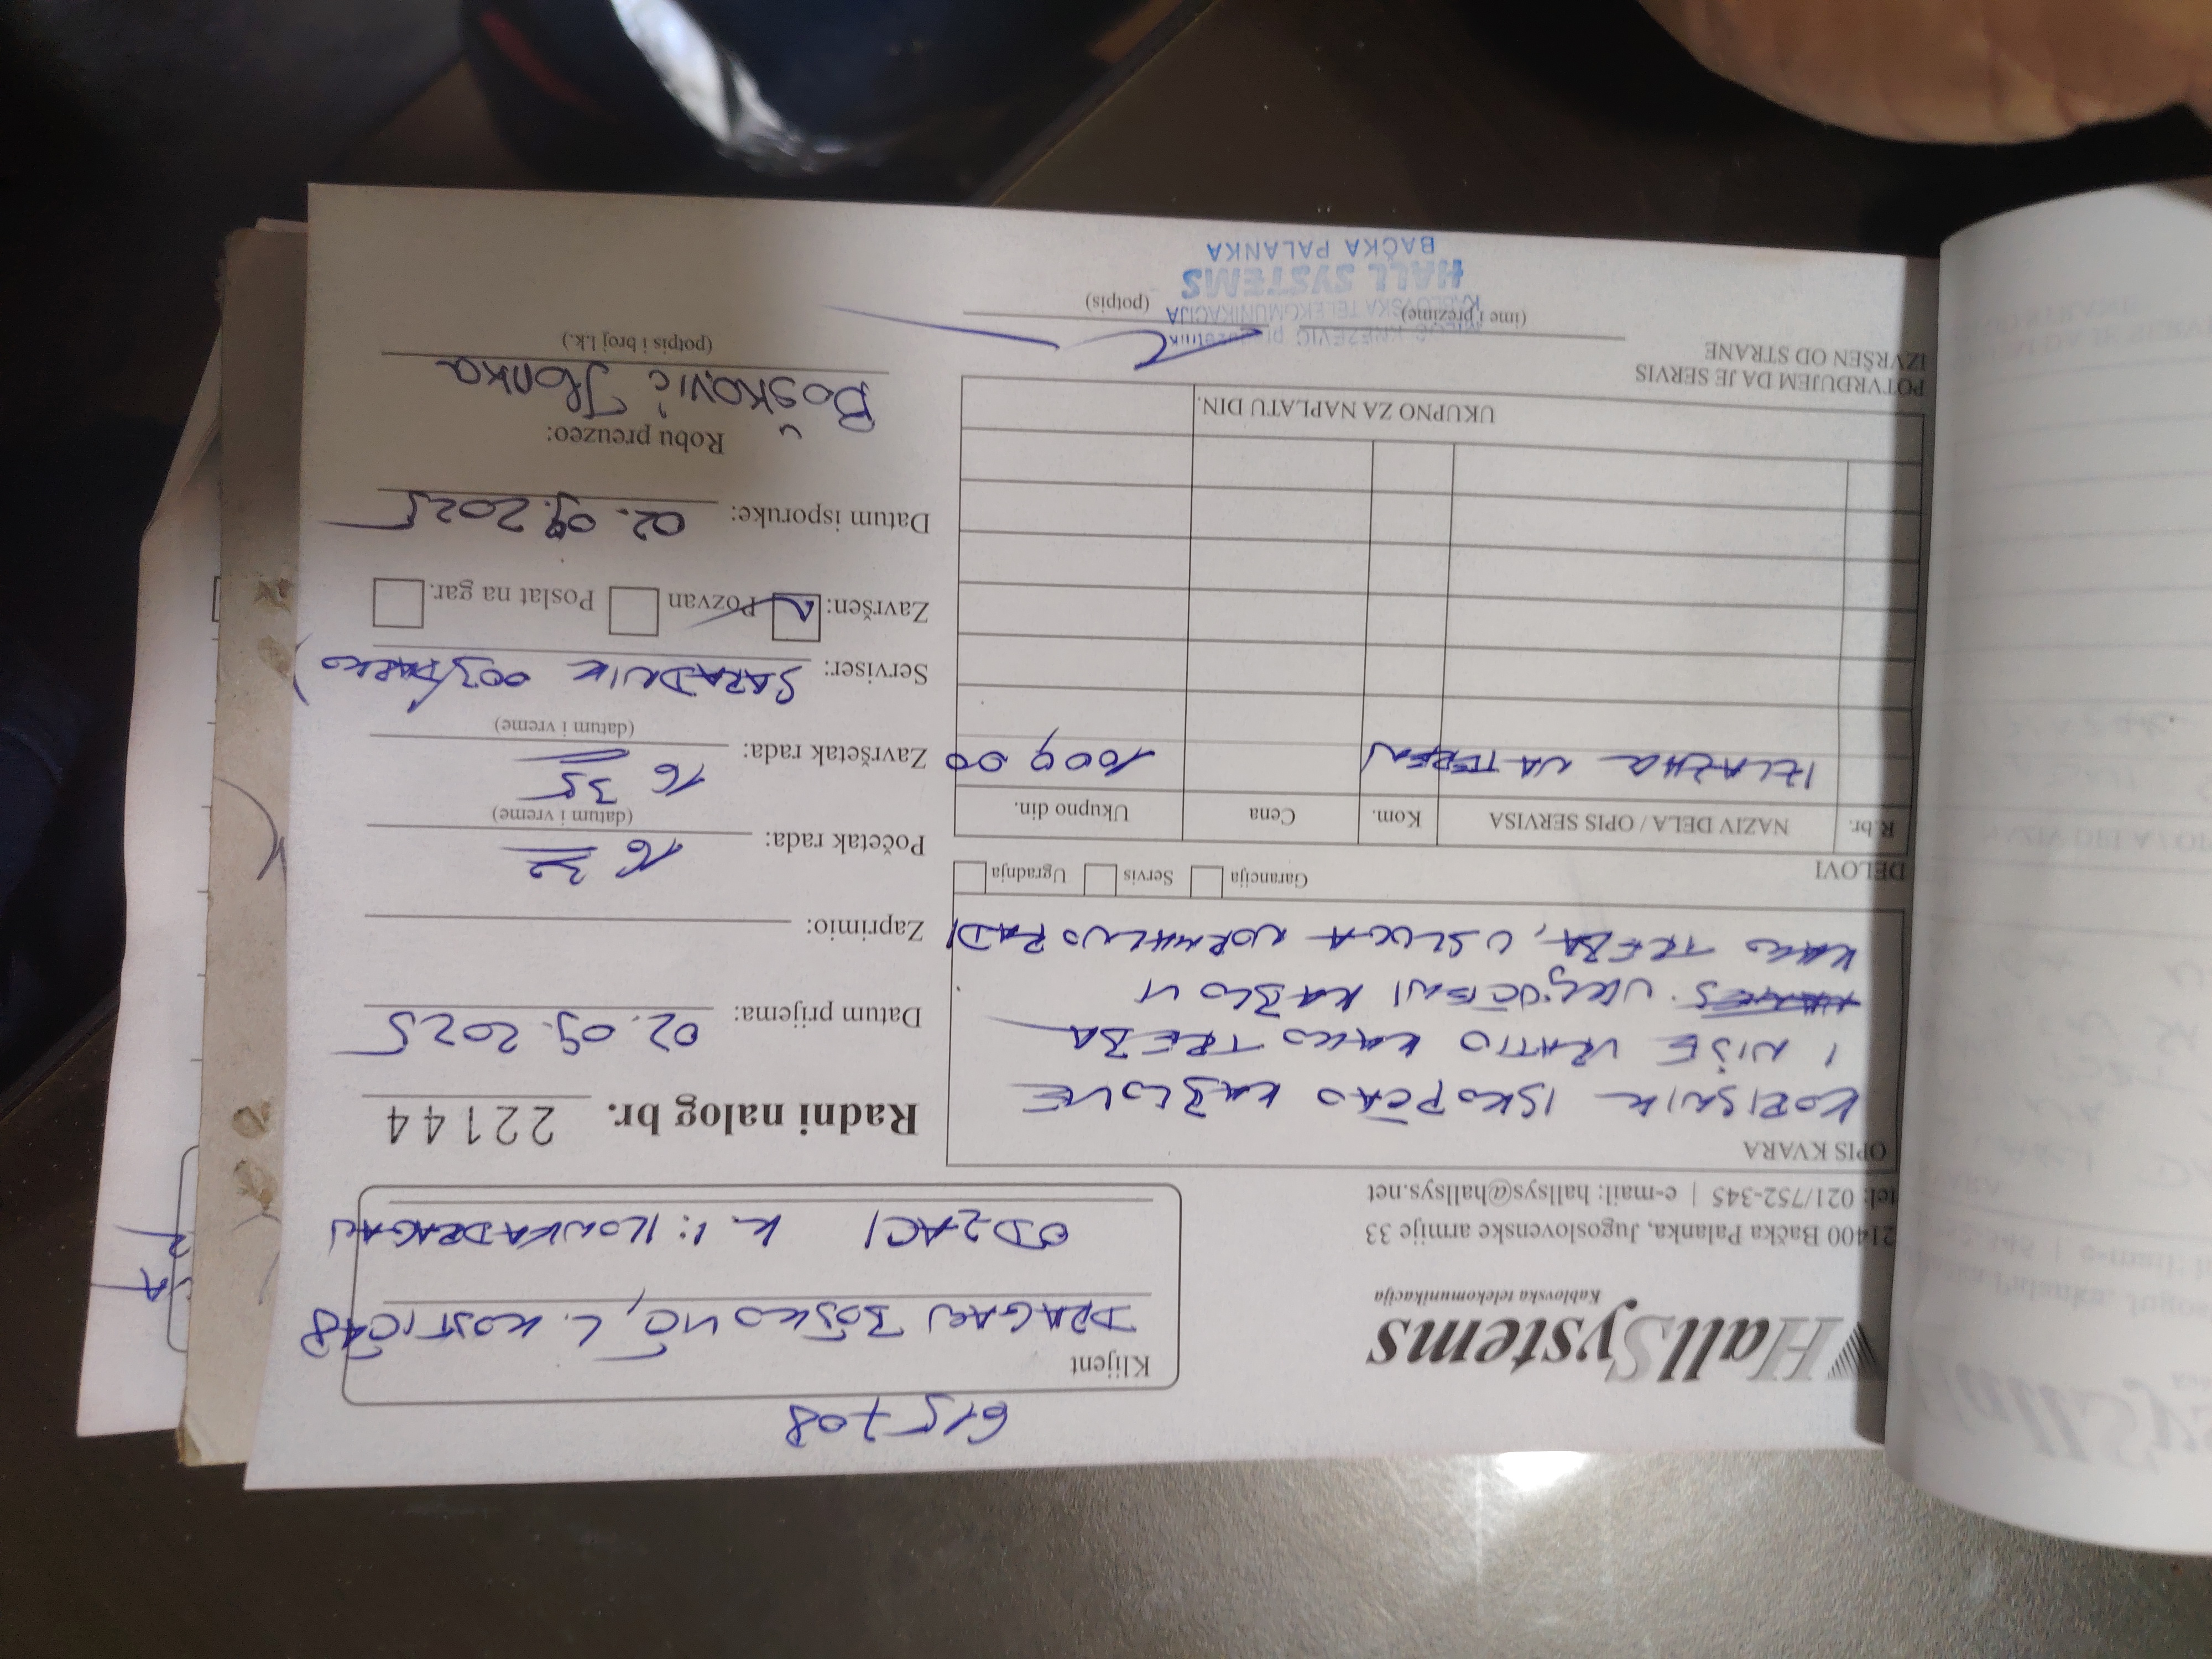 615708
HallSystems
Kablovska telekomunikacija
21400 Bačka Palanka, Jugoslovenske armije 33
tel: 021/752-345 | e-mail: hallsys@hallsys.net
Klijent
DRAGAN BOŠKOVIĆ, L. KOSTIĆA 8
ODZACI K. I: ILONKADRAGAN
OPIS KVARA
KORISNIK ISKOPČAO KABLOVE
I NIJE VRATIO KAKO TREBA
UKLJUČENI KABLOVI
KAKO TREBA, USLUGA NORMALNO RADI
Radni nalog br. 22144
Datum prijema: 02.09.2025
Zaprimio:
Početak rada: 16 32
(datum i vreme)
Završetak rada: 16 35
(datum i vreme)
Serviser: SARADNIK 003 (DARKO)
Završen: Pozvan Poslat na gar.
Datum isporuke: 02.09.2025
Robu preuzeo:
Bošković Ilonka
(potpis i broj l.k.)
DELOVI Garancija Servis Ugradnja
R.br. NAZIV DELA / OPIS SERVISA Kom. Cena Ukupno din.
IZLAZKA NA TEREN 1000,00
UKUPNO ZA NAPLATU DIN.
POTVRĐUJEM DA JE SERVIS
IZVRŠEN OD STRANE
(ime i prezime) (potpis)
KNEŽEVIĆ preduzetnik
KABLOVSKA TELEKOMUNIKACIJA
HALL SYSTEMS
BAČKA PALANKA